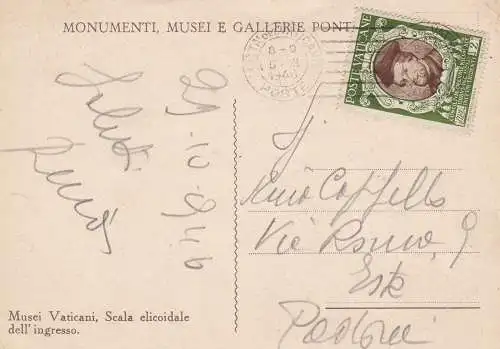 MONUMENTI, MUSEI E GALLERIE PONT
8-9
POSTE
POSTE VATICANE
29-10-946
Saluti
Cappello
Via Roma, 9
Este
Padova
Musei Vaticani, Scala elicoidale
dell'ingresso.